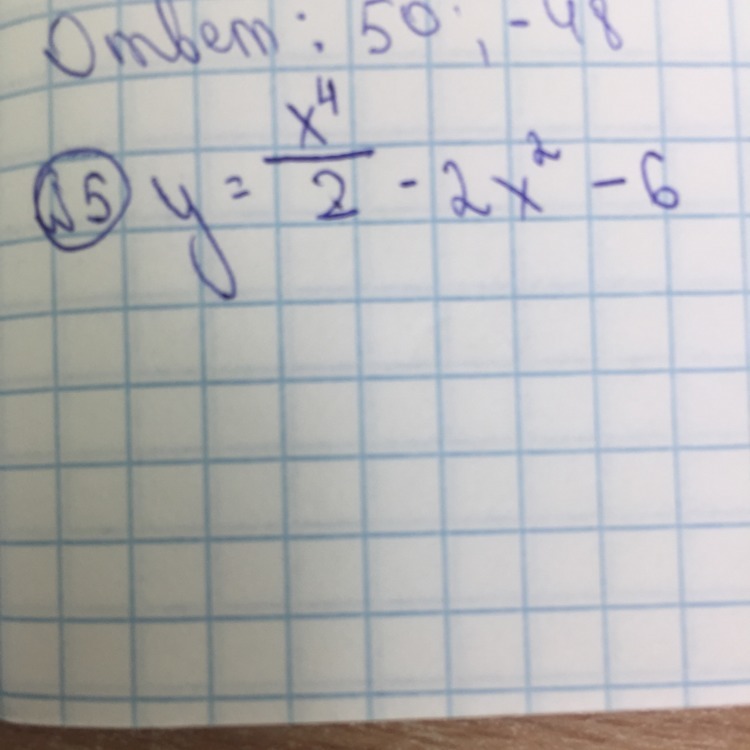 Ответ: 50; -48
№5 y = x⁴/2 - 2x² - 6